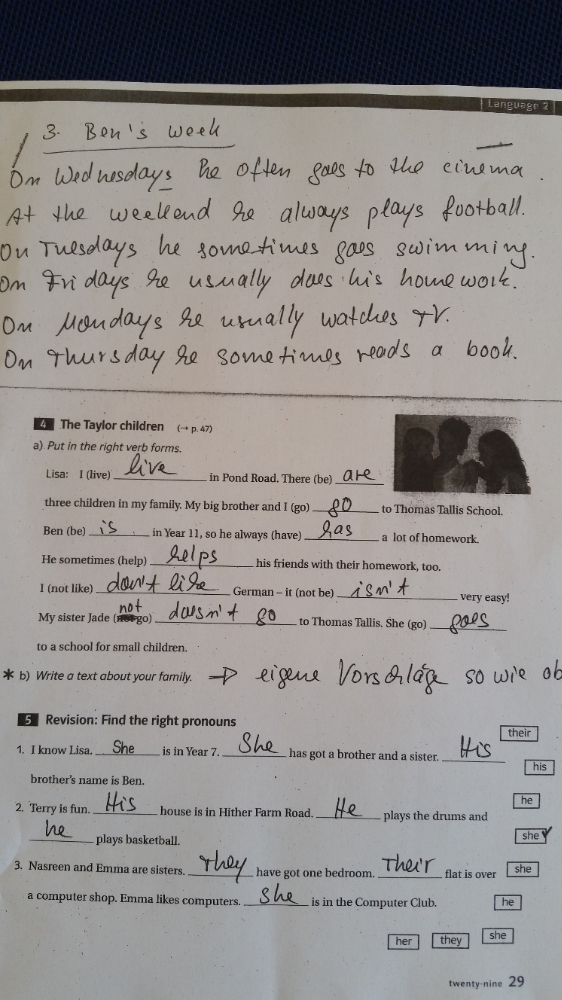 Language 2
3. Ben's week
On Wednesdays he often goes to the cinema.
At the weekend he always plays football.
On Tuesdays he sometimes goes swimming.
On Fridays he usually does his homework.
On Mondays he usually watches TV.
On Thursday he sometimes reads a book.
4 The Taylor children (→ p. 47)
a) Put in the right verb forms.
Lisa: I (live) live in Pond Road. There (be) are
three children in my family. My big brother and I (go) go to Thomas Tallis School.
Ben (be) is in Year 11, so he always (have) has a lot of homework.
He sometimes (help) helps his friends with their homework, too.
I (not like) don't like German – it (not be) isn't very easy!
My sister Jade (not go) doesn't go to Thomas Tallis. She (go) goes
to a school for small children.
* b) Write a text about your family. → eigene Vorschläge so wie ob
5 Revision: Find the right pronouns
their
1. I know Lisa. She is in Year 7. She has got a brother and a sister. His
his
brother's name is Ben.
he
2. Terry is fun. His house is in Hither Farm Road. He plays the drums and
she
he plays basketball.
3. Nasreen and Emma are sisters. They have got one bedroom. Their flat is over
she
a computer shop. Emma likes computers. She is in the Computer Club.
he
her they she
twenty-nine 29